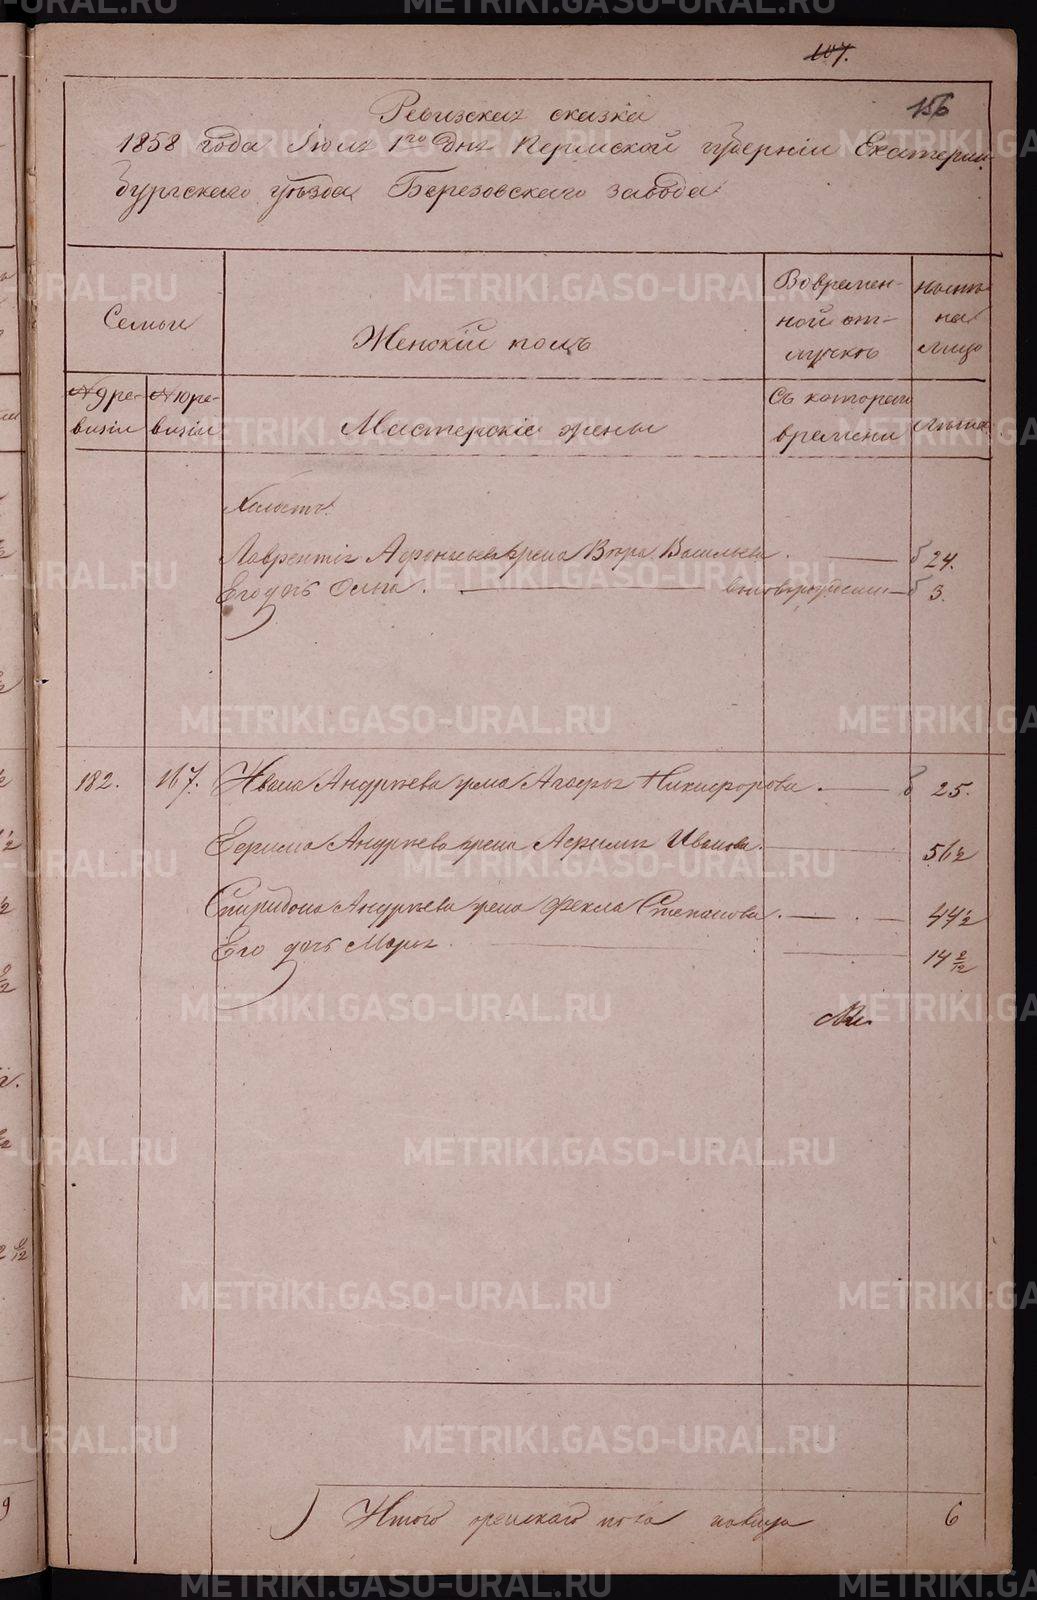 107.
156
Ревизская сказка
1858 года Июня 1го дня Пермской губернiи Екатерин-
бургскаго уѣзда Березовскаго завода
Семьи
Женскiй полъ
Во времен-
ной от-
лучкѣ
на лицо
№ 9 ре-
визiи
№ 10 ре-
визiи
Мастерскiе жены
Съ котораго
времени
Лѣта
Лаврентiя жена Вѣра Васильева. 24.
Его дочь 3.
182. 167. Ивана Андрѣева жена Агафья Никифорова. 25.
Ефима Андрѣева жена Ивanова. 56½
Спиридона Андрѣева жена Фекла Степанова. 44½
Его дочь Марья. 14
Итого женскаго пола налицо 6
METRIKI.GASO-URAL.RU